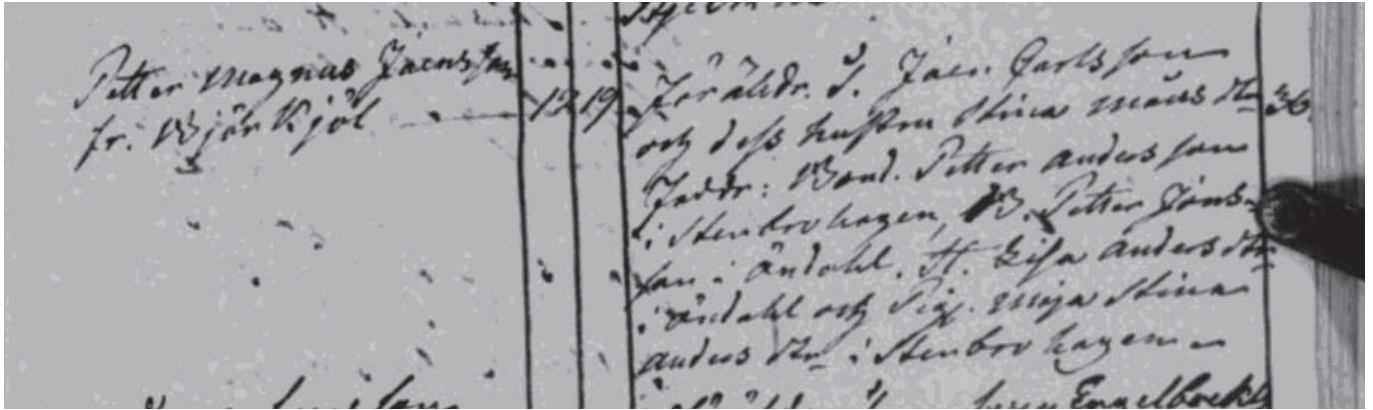 Petter Magnus Jaensson
fr. Björkhjöl — 12 19
Föräldr. T. Jaen. Carlsson
och dess hustru Stina Måns dtr 36.
Faddr: Bond. Petter Anders son
i Stenbrohagen, B. Petter Jons-
son i Ändahl, H. Lisa Anders dtr
i Ändahl och Pig. Maja Stina
Anders dtr i Stenbro hagen
Engelbrekts